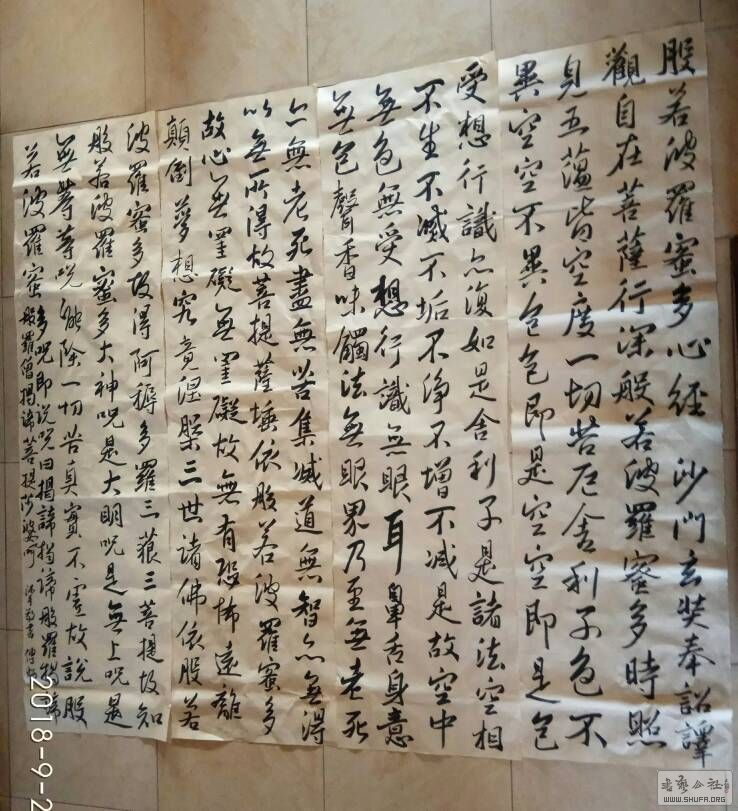 般若波羅蜜多心經 沙門玄奘奉詔譯
觀自在菩薩行深般若波羅蜜多時照
見五蘊皆空度一切苦厄舍利子色不
異空空不異色色即是空空即是色
受想行識亦復如是舍利子是諸法空相
不生不滅不垢不淨不增不減是故空中
無色無受想行識無眼耳鼻舌身意
無色聲香味觸法無眼界乃至無老死
亦無老死盡無苦集滅道無智亦無得
以無所得故菩提薩埵依般若波羅蜜多
故心無罣礙無罣礙故無有恐怖遠離
顛倒夢想究竟涅槃三世諸佛依般若
波羅蜜多故得阿耨多羅三藐三菩提故知
般若波羅蜜多大神咒是大明咒是無上咒是
無等等咒能除一切苦真實不虛故說般
若波羅蜜
多咒即說咒曰揭諦揭諦般羅揭諦
般羅僧揭諦菩提莎婆呵
2018-9-2
书艺公社
WWW.SHUFA.ORG